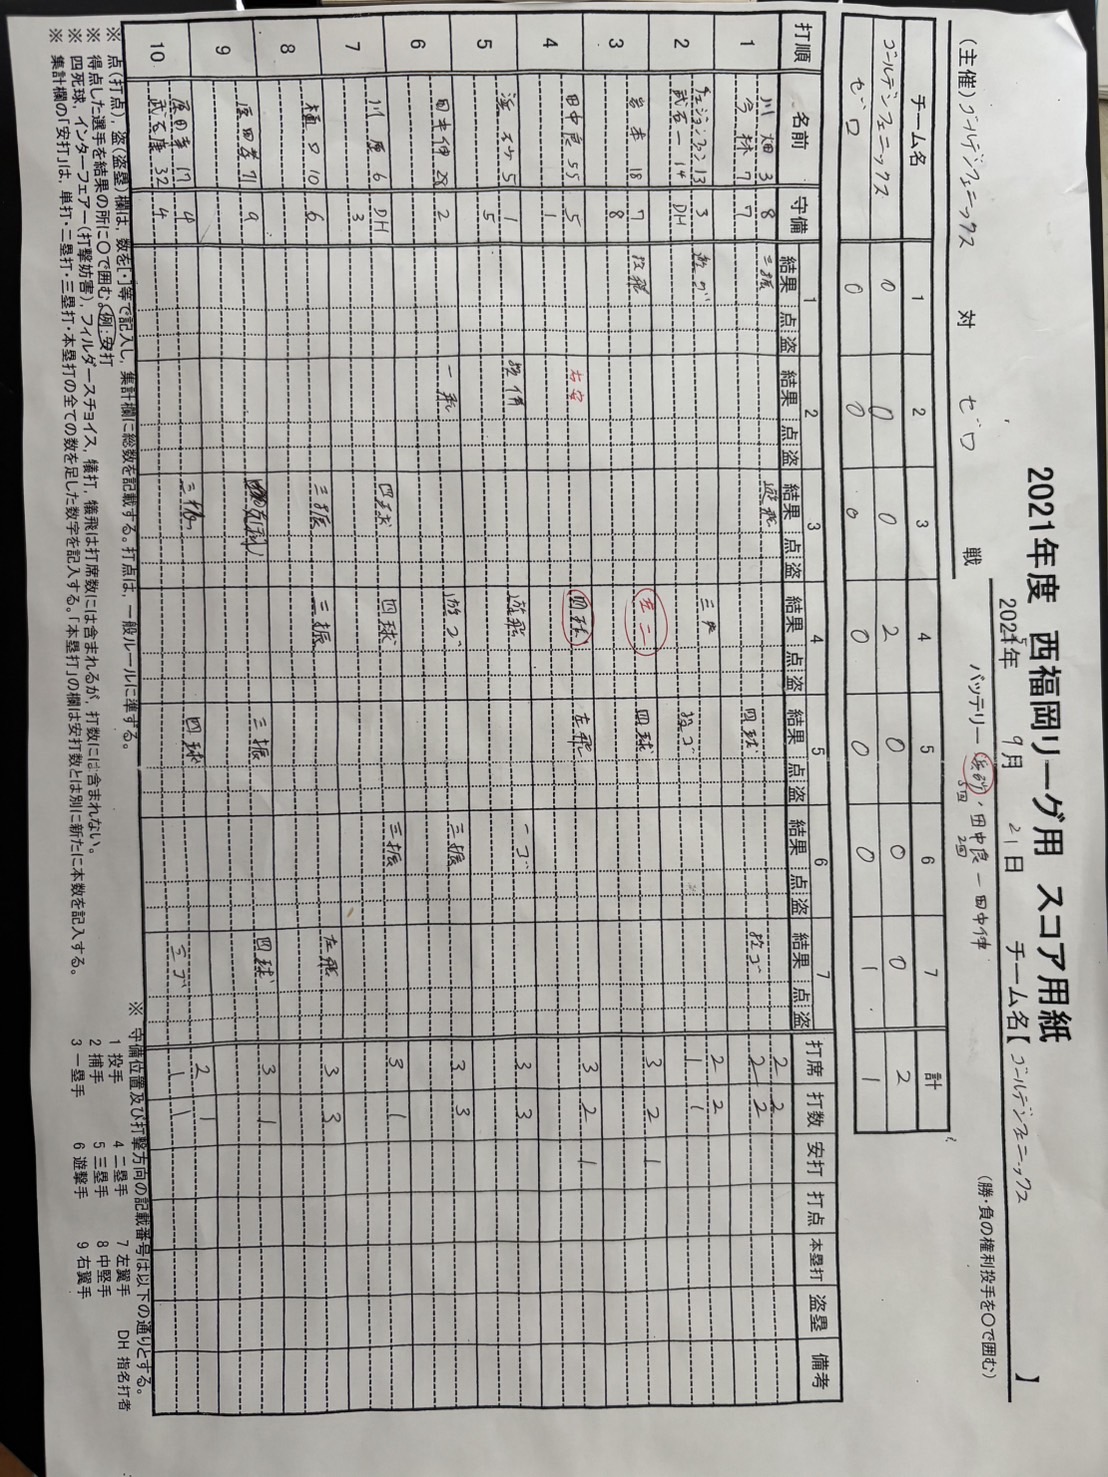 2021年度 西福岡リーグ用 スコア用紙
2021年 9月 21日 チーム名【ゴールデンフェニックス】
(主催)ゴールデンフェニックス 対 ゼロ 戦
バッテリー ・田中良 ー 田中伸
2回
(勝・負の権利投手を○で囲む)
チーム名 1 2 3 4 5 6 7 計
ゴールデンフェニックス 0 0 0 2 0 0 0 2
ゼロ 0 0 0 0 0 0 1 1
打順 名前 守備 1 2 3 4 5 6 7 打席 打数 安打 打点 本塁打 盗塁 備考
結果 点 盗 結果 点 盗 結果 点 盗 結果 点 盗 結果 点 盗 結果 点 盗 結果 点 盗
1 川畑 3 8 三振 遊飛 四球 投ゴ 2 2
今林 7 7 2 2
2 13 3 三振 投ゴ 2 2
武石一 14 DH 1 1
3 岩本 18 7 投飛 左二 四球 3 2 1
8
4 田中良 55 5 右安 四球 左飛 3 2 1
1
5 5 1 遊飛 一ゴ 3 3
5
6 田中伸 28 2 一飛 遊ゴ 三振 3 3
7 川原 6 DH 四球 四球 三振 3 1
3
8 樋口 10 6 三振 三振 左飛 3 3
9 原田 71 9 三振 四球 3 1
10 原田孝 17 4 三振 四球 2 1
武石康 32 4 三ゴ 1 1
※ 点(打点)、盗(盗塁)欄は、数を[・]等で記入し、集計欄に総数を記載する。打点は、一般ルールに準ずる。
※ 得点した選手を結果の所に○で囲む。例:安打
※ 四死球、インターフェアー(打撃妨害)、フィルダースチョイス、犠打、犠飛は打席数には含まれるが、打数には含まれない。
※ 集計欄の「安打」は、単打・二塁打・三塁打・本塁打の全ての数を足した数字を記入する。「本塁打」の欄は安打数とは別に新たに本数を記入する。
※ 守備位置及び打撃方向の記載番号は以下の通りとする。
1 投手 4 二塁手 7 左翼手 DH 指名打者
2 捕手 5 三塁手 8 中堅手
3 一塁手 6 遊撃手 9 右翼手